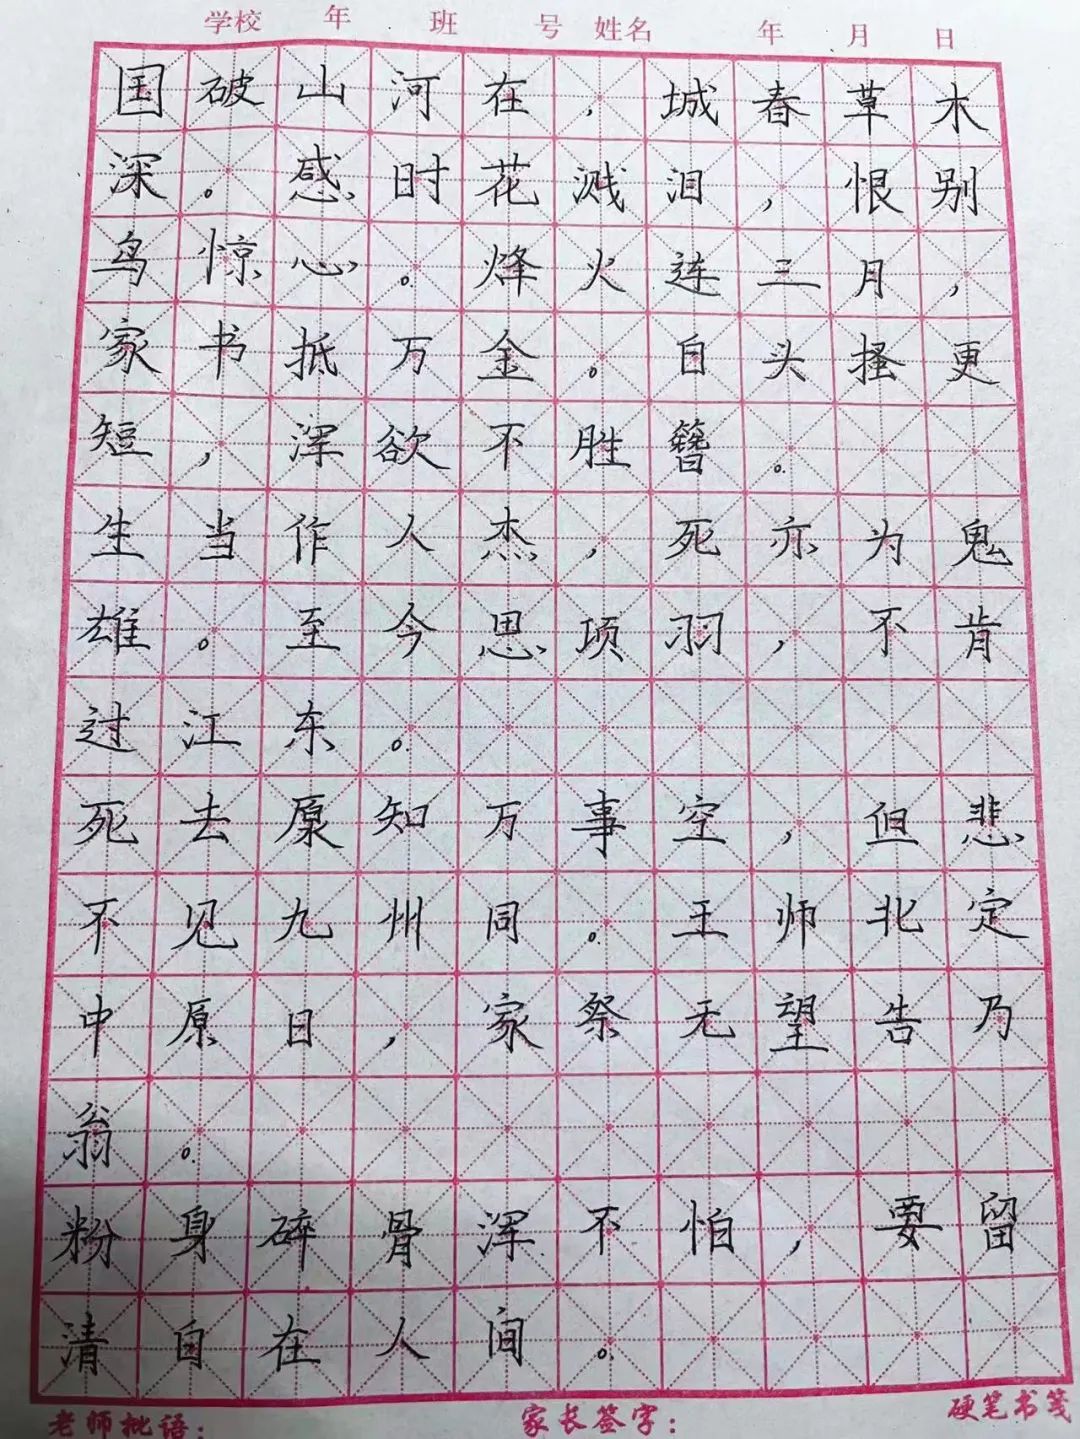 学校 年 班 号 姓名 年 月 日
国破山河在，城春草木
深。感时花溅泪，恨别
鸟惊心。烽火连三月，
家书抵万金。白头搔更
短，浑欲不胜簪。
生当作人杰，死亦为鬼
雄。至今思项羽，不肯
过江东。
死去原知万事空，但悲
不见九州同。王师北定
中原日，家祭无望告乃
翁。
粉身碎骨浑不怕，要留
清白在人间。
老师批语： 家长签字： 硬笔书笺